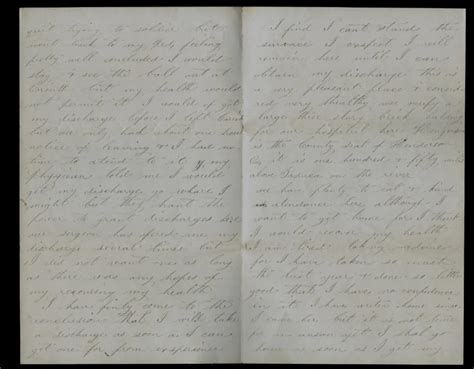 quit trying to soldier but
went back to my Regt feeling
pretty well concluded I would
stay & see the ball out at
Corinth but my health would
not permit it I would of got
my discharge before I left Corinth
but we only had about one hours
notice of leaving & I had no
time to attend to it my
physician told me I would
get my discharge go where I
might but they have the
power to grant discharges
surgeon has offered me my
discharge several times but
I did not want it as long
as there was any hopes of
my recovering my health
I have firmly come to the
conclusion that I will take
a discharge as soon as I can
get one for from experience
I find I cant stand the
service I expect I will
remain here until I can
obtain my discharge this is
a very pleasant place & consid
ered very healthy we occupy a
large three story brick building
for our hospital here
is the County seat of Henderson
Co it is one hundred & fifty miles
above on the river
we have plenty to eat & kind
attendance here although I
want to get home for I think
I would recover my health
I am tired taking medicine
for I have taken so much
the last year & done so little
good that I have no confidence
in it I have written home since
I came here but it is not time
for an answer yet I shall go
home as soon as I get my